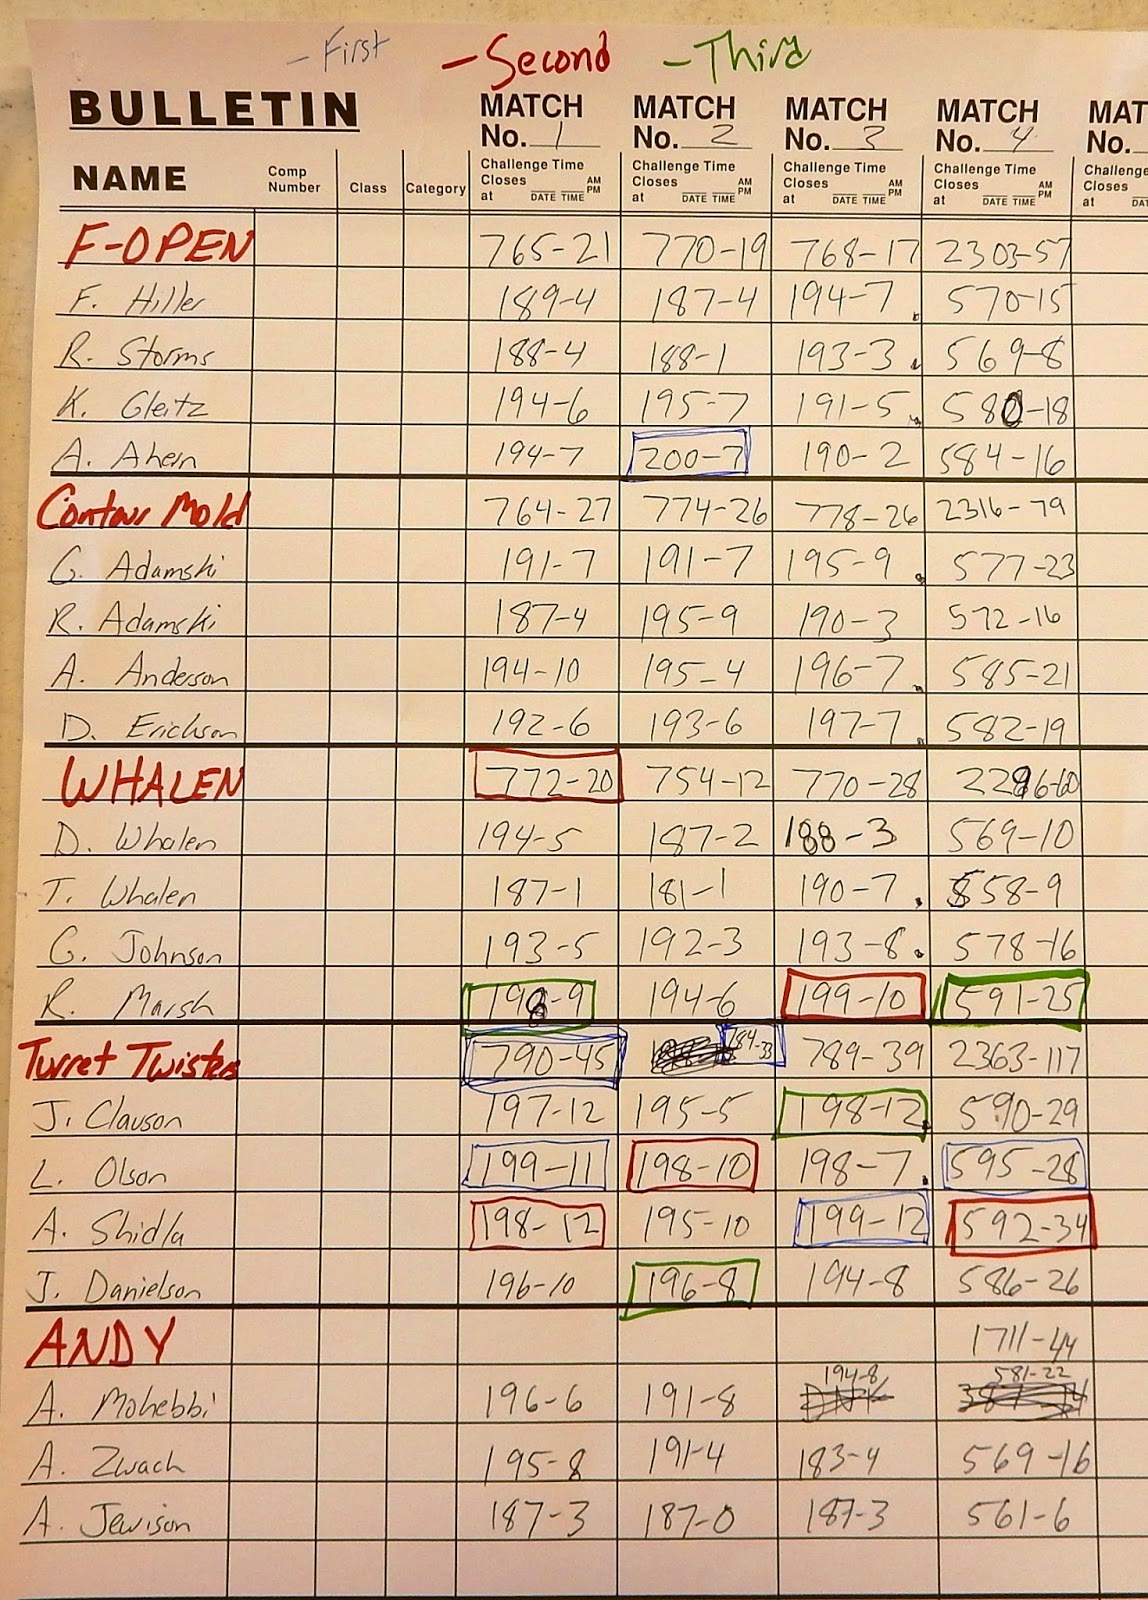 - First - Second - Third
BULLETIN MATCH No. 1 MATCH No. 2 MATCH No. 3 MATCH No. 4 MAT No.
NAME Comp Number Class Category Challenge Time Closes at DATE TIME AM PM Challenge Time Closes at DATE TIME AM PM Challenge Time Closes at DATE TIME AM PM Challenge Time Closes at DATE TIME AM PM Challenge Closes at DAT
F-OPEN 765-21 770-19 768-17 2303-57
F. Hiller 189-4 187-4 194-7 570-15
R. Storms 188-4 188-1 193-3 569-8
K. Gleitz 194-6 195-7 191-5 580-18
A. Ahern 194-7 200-7 190-2 584-16
Contour Mold 764-27 774-26 778-26 2316-79
G. Adamski 191-7 191-7 195-9 577-23
R. Adamski 187-4 195-9 190-3 572-16
A. Anderson 194-10 195-4 196-7 585-21
D. Erickson 192-6 193-6 197-7 582-19
WHALEN 772-20 754-12 770-28 2296-60
D. Whalen 194-5 187-2 188-3 569-10
T. Whalen 187-1 181-1 190-7 558-9
G. Johnson 193-5 192-3 193-8 578-16
R. Marsh 198-9 194-6 199-10 591-25
Turret Twisters 790-45 784-33 789-39 2363-117
J. Clauson 197-12 195-5 198-12 590-29
L. Olson 199-11 198-10 198-7 595-28
A. Shidla 198-12 195-10 199-12 592-34
J. Danielson 196-10 196-8 194-8 586-26
ANDY 1711-44
A. Mohebbi 196-6 191-8 194-8 581-22
A. Zwach 195-8 191-4 183-4 569-16
A. Jewison 187-3 187-0 187-3 561-6